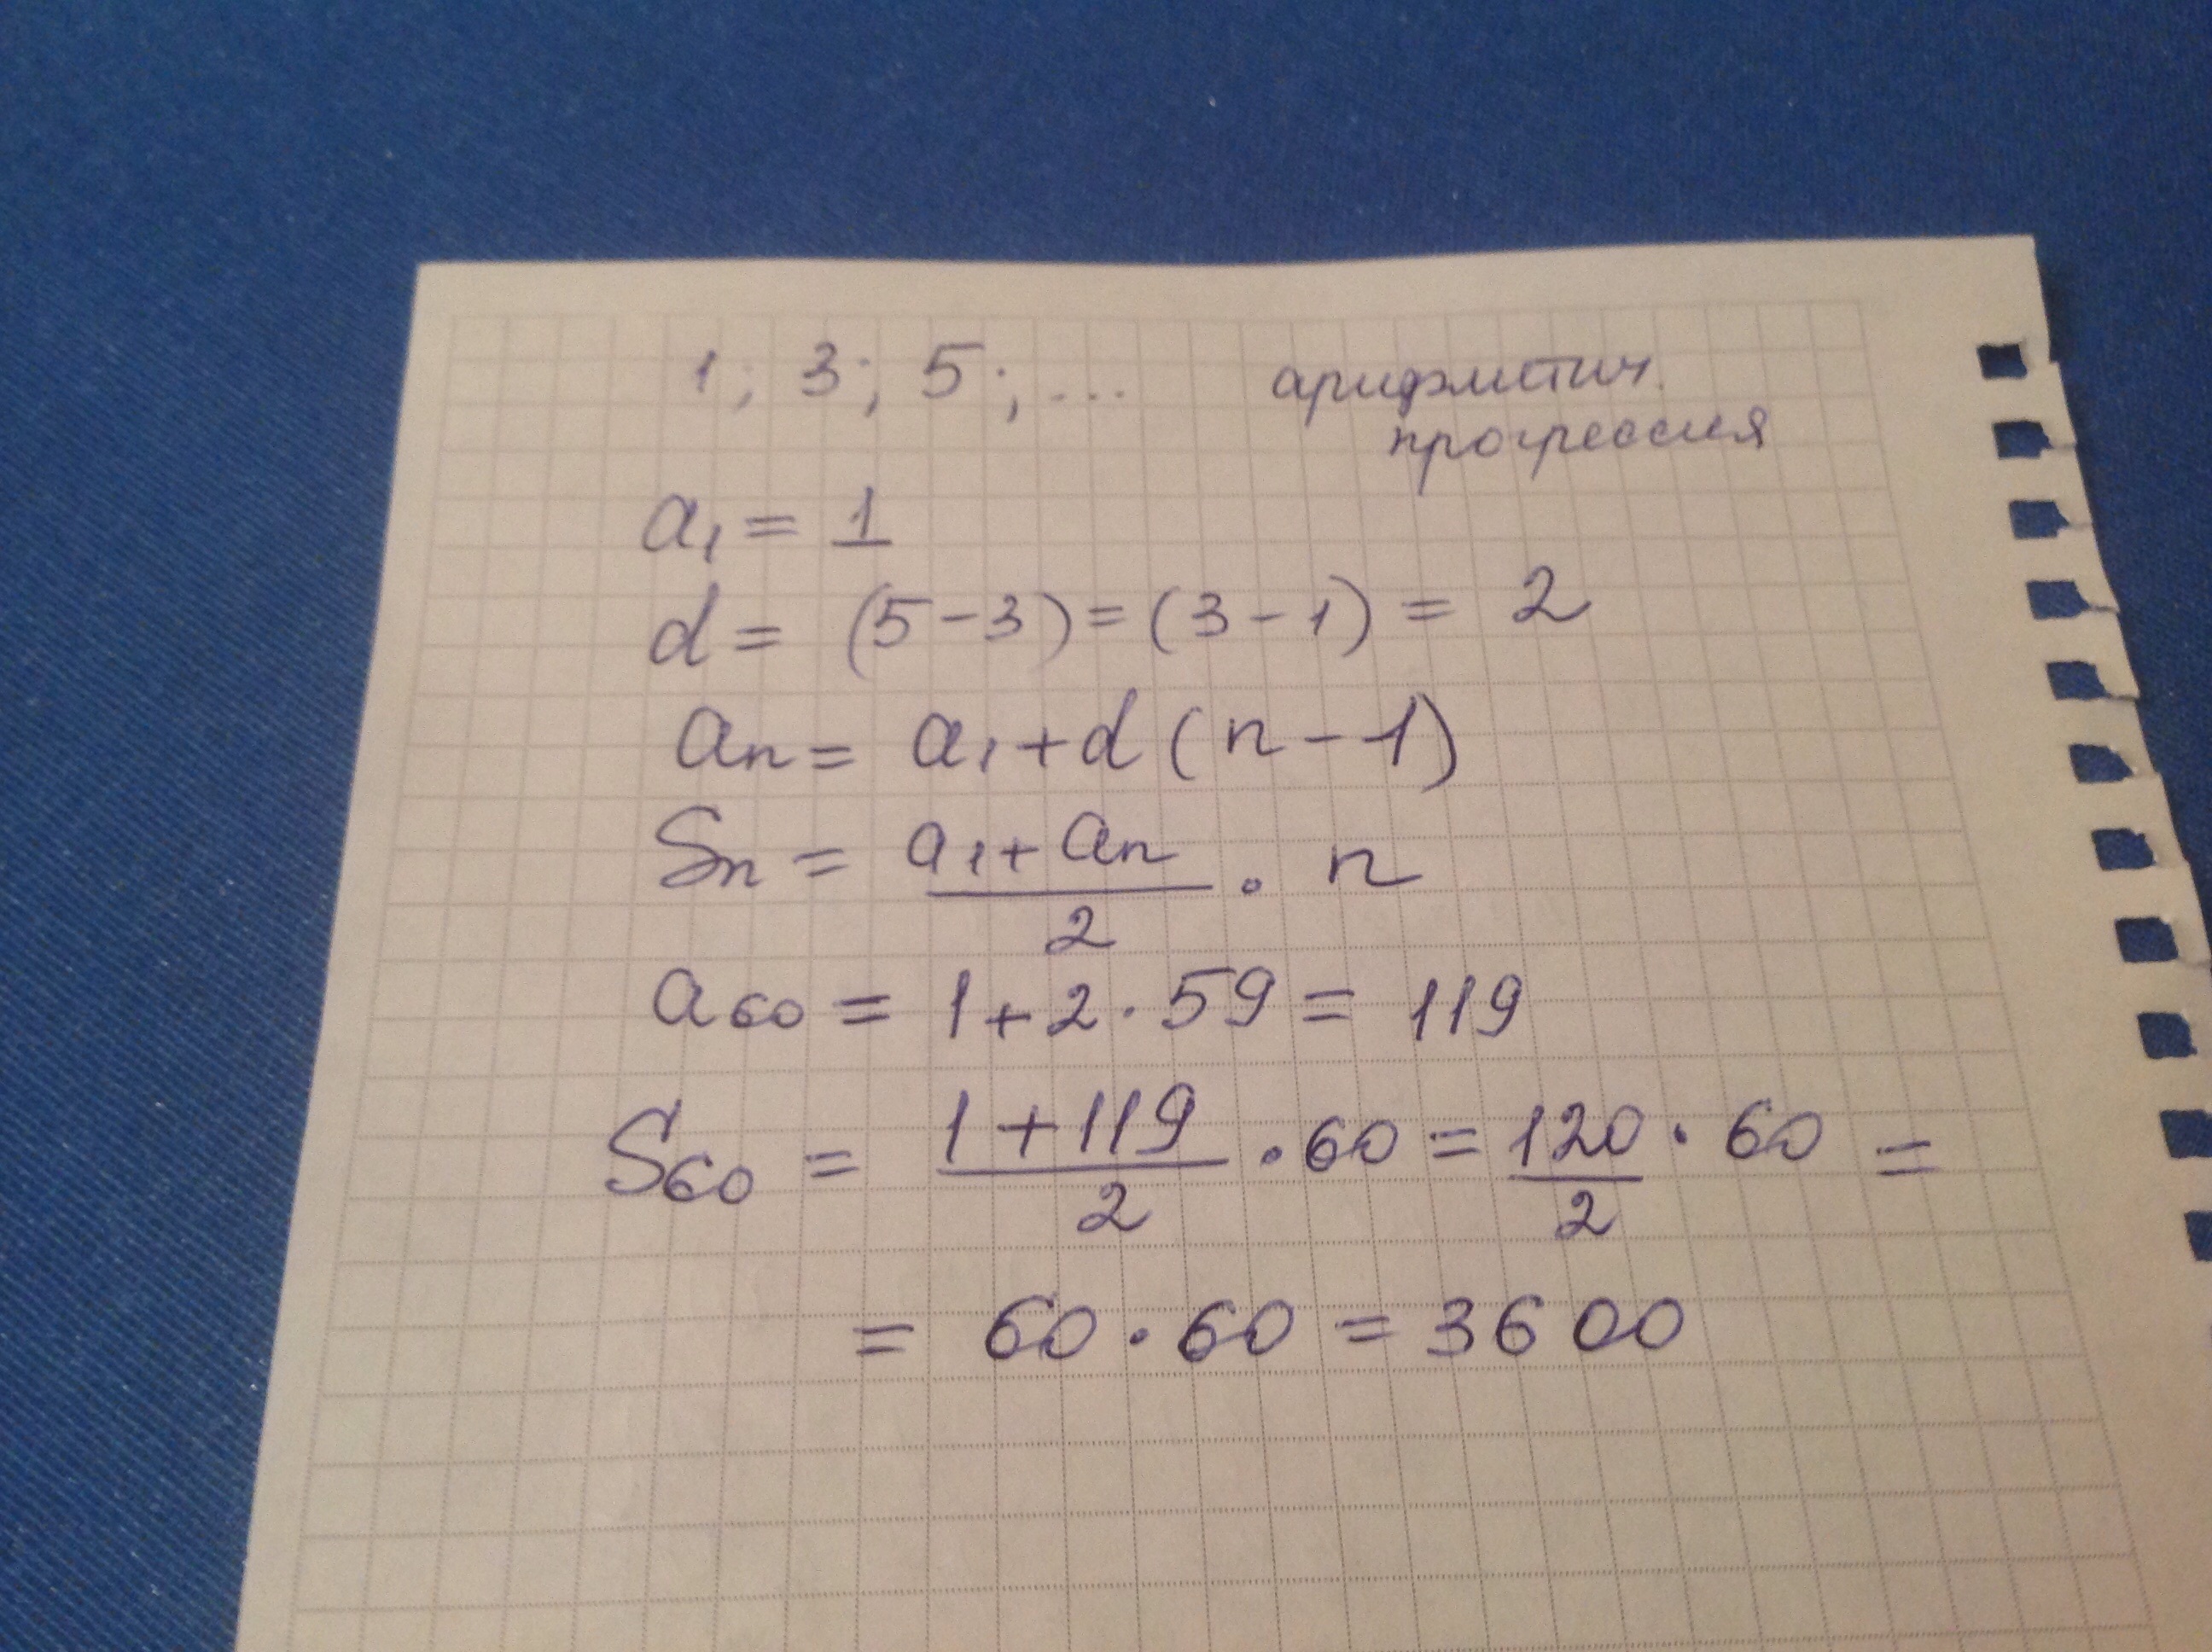 1; 3; 5; ... арифметич.
прогрессия
a₁ = 1
d = (5-3) = (3-1) = 2
aₙ = a₁ + d(n-1)
Sₙ = (a₁ + aₙ)/2 · n
a₆₀ = 1 + 2 · 59 = 119
S₆₀ = (1 + 119)/2 · 60 = 120/2 · 60 =
= 60 · 60 = 3600